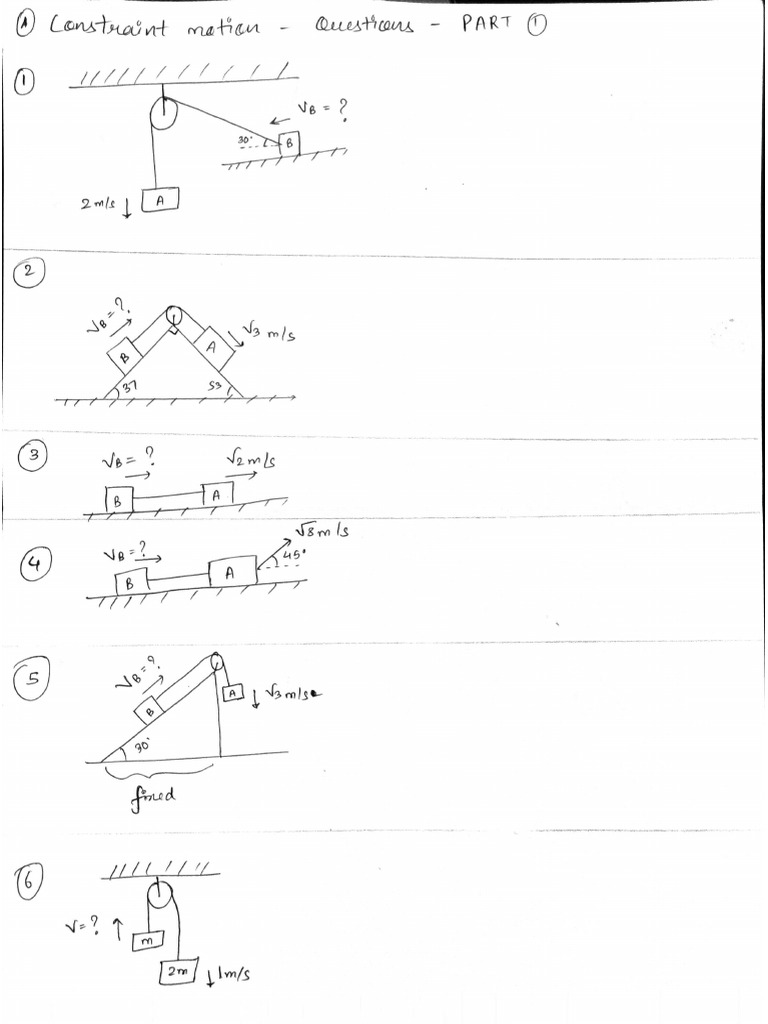 Ⓐ Constraint motion - Questions - PART ①
①
VB = ?
30°
B
2 m/s
A
②
VB = ?
√3 m/s
B
A
37
53
③
VB = ?
√2 m/s
B
A
④
√8 m/s
VB = ?
45°
B
A
⑤
VB = ?
B
A
√3 m/s
30°
fixed
⑥
V = ?
m
2m
1 m/s